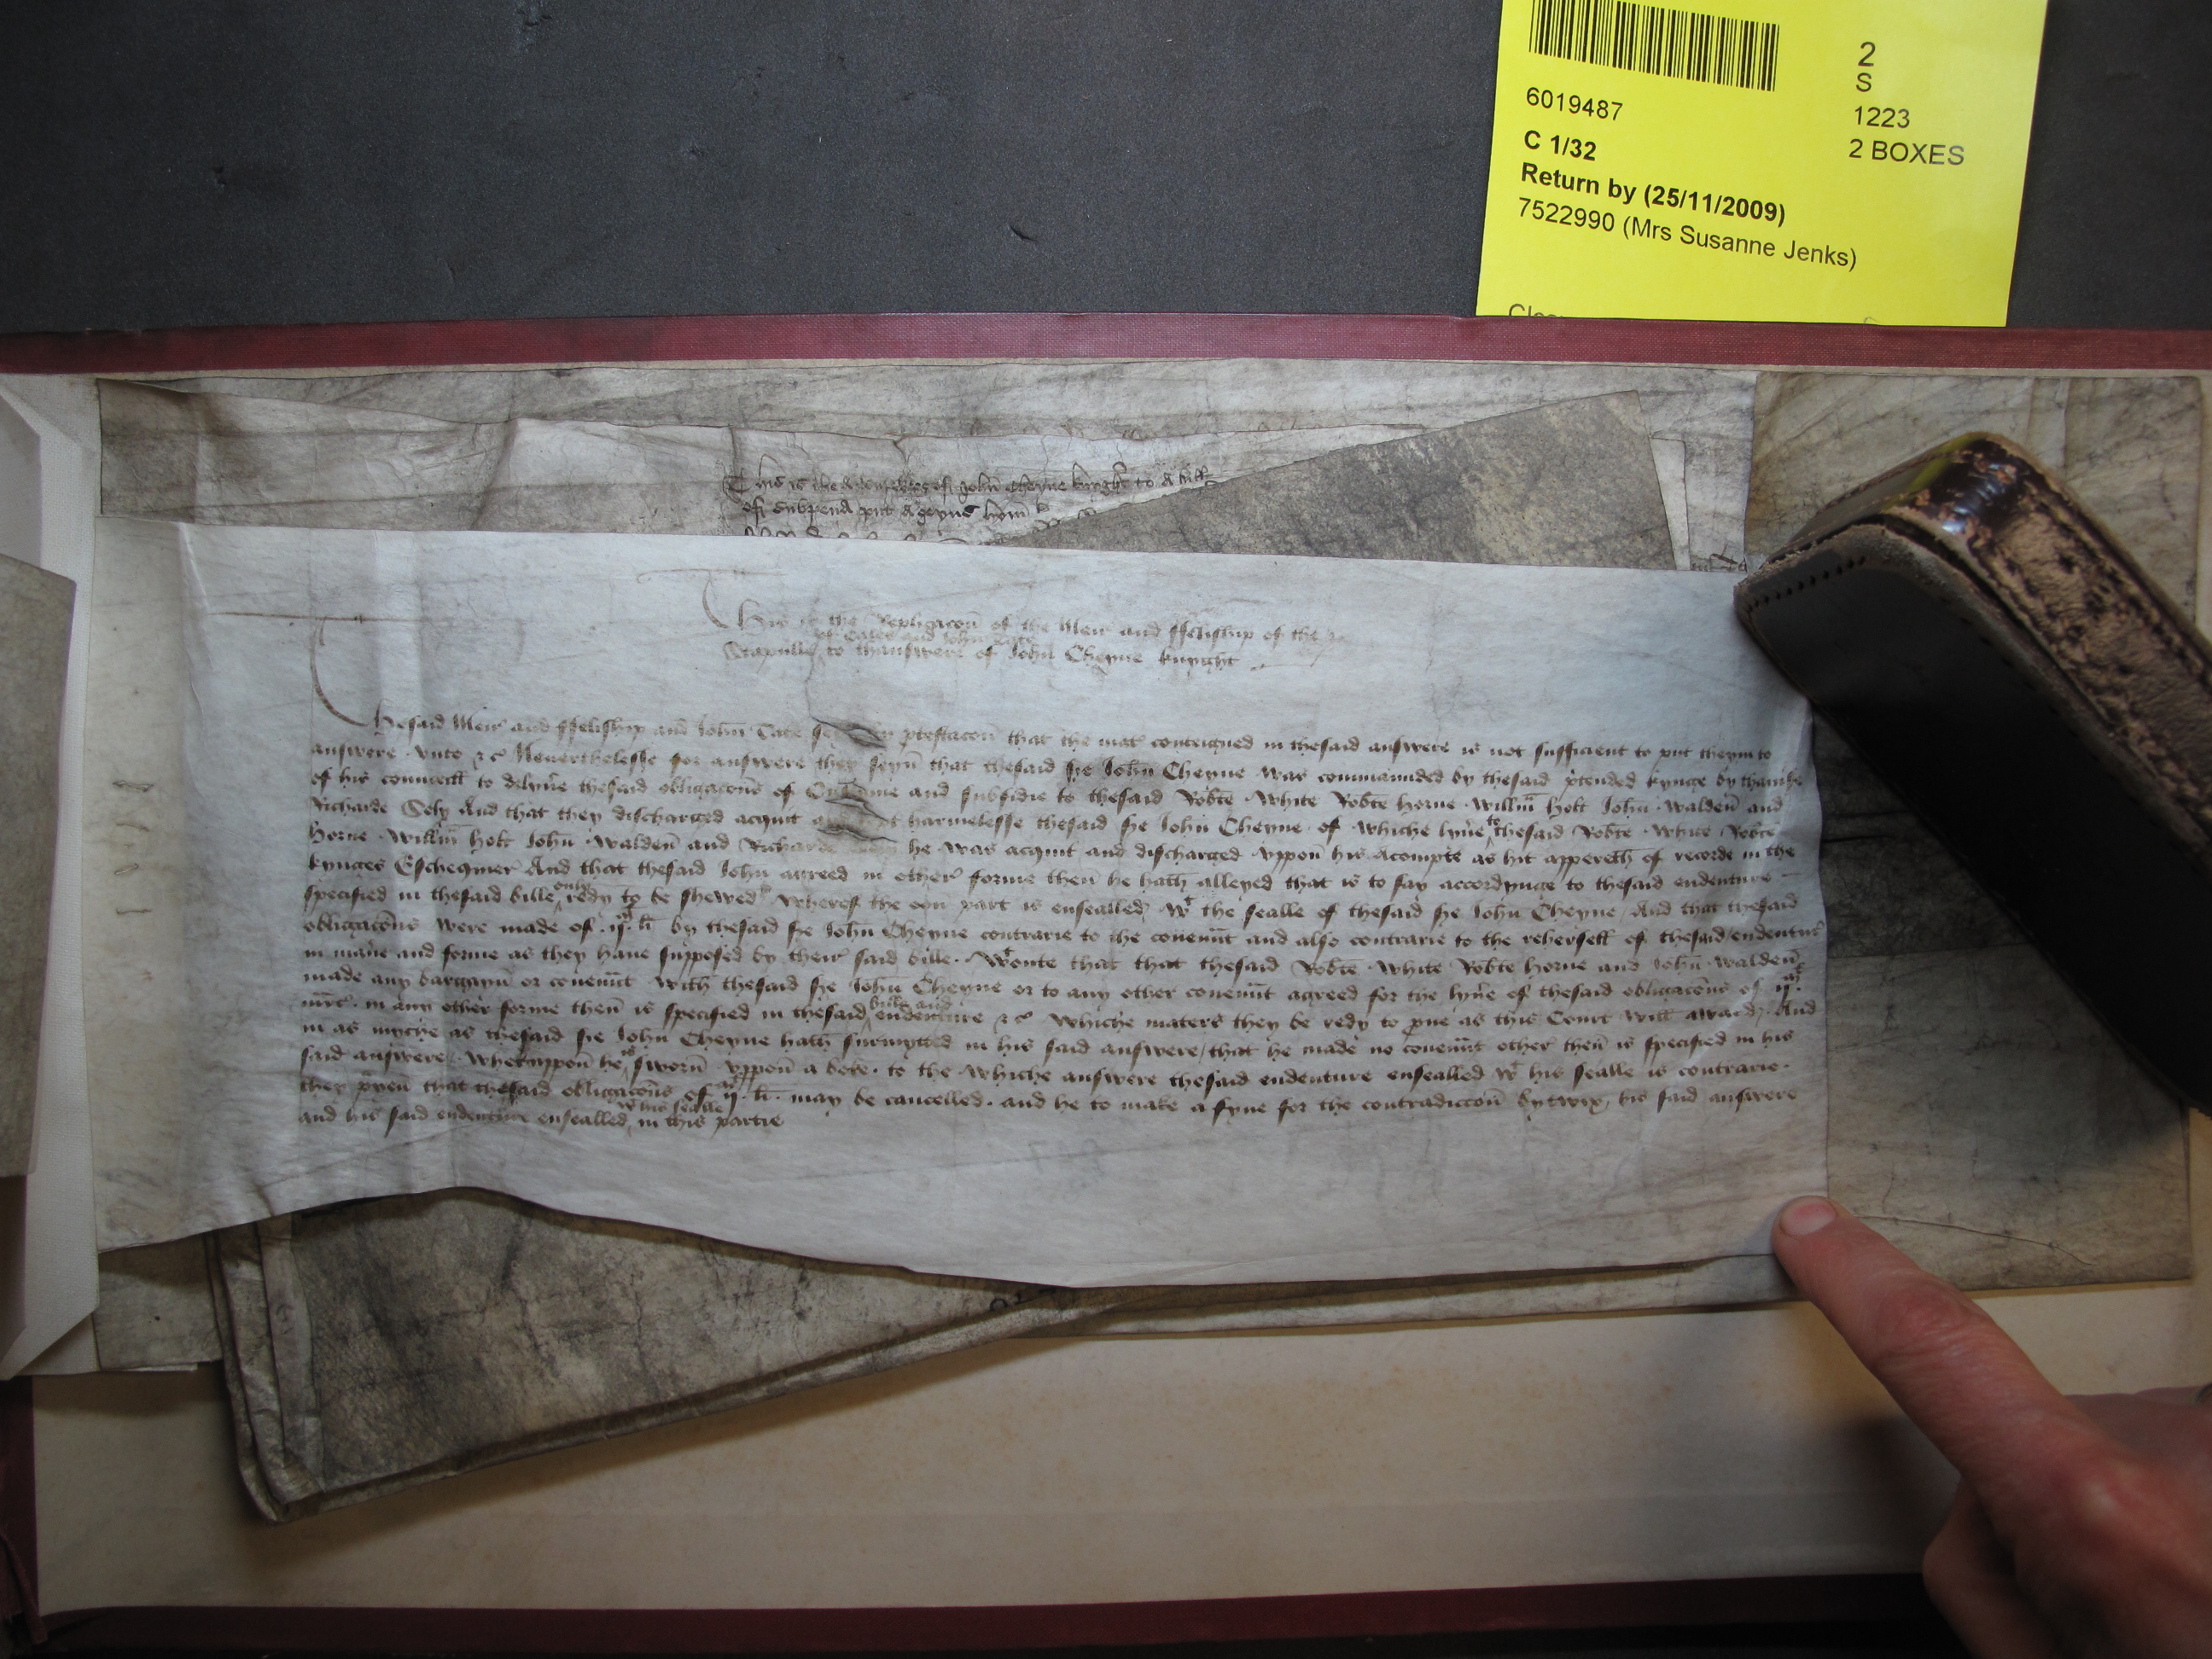 2
S
6019487
1223
C 1/32
2 BOXES
Return by (25/11/2009)
7522990 (Mrs Susanne Jenks)
This is the Answere of John Cheyne knyght to A bill
of Subpena put Ageyns hym
This is the Replicacon of the Meir and ffeliship of the
Stapulle of Cales and John Tate to thanswere of John Cheyne knyght
Thesaid Meir and ffeliship and John Tate sey by protestacon that the mater conteigned in thesaid answere is not sufficient to put theym to
answere vnto &c Neuerthelesse for answere they seyn that thesaid Sir John Cheyne was commaunded by thesaid pretended kynge by thauise
of his councell to delyuere thesaid obligacons of Custume and subsidie to thesaid Robte White Robte Horne Willm Holt John Walden and
Richarde Sely And that they discharged acquit harmelesse thesaid Sir John Cheyne of whiche lyuere to thesaid Robte White Robte
Horne Willm Holt John Walden and Richarde he was acquit and discharged vppon his Acompte as hit appereth of recorde in the
kynges Eschequier And that thesaid John agreed in other forme then he hath alleyed that is to say accordynge to thesaid endenture
specified in thesaid bille redy to be shewed wherof the oon part is ensealled wt the sealle of thesaid Sir John Cheyne And that thesaid
obligacons were made of ijml li by thesaid Sir John Cheyne contrarie to the couenunt and also contrarie to the rehersell of thesaid endenture
in manere and forme as they haue supposed by their said bille Wtoute that that thesaid Robte White Robte Horne and John Walden
made any bargayn or couenunt with thesaid Sir John Cheyne or to any other couenunt agreed for the lyuere of thesaid obligacons of ijml
in any other forme then is specified in thesaid bille and endenture &c Whiche maters they be redy to proue as this Court will award And
in as myche as thesaid Sir John Cheyne hath surmytted in his said answere that he made no couenunt other then is specified in his
said answere wheruppon he is sworn vppon a boke to the whiche answere thesaid endenture ensealled wt his sealle is contrarie
they preyen that thesaid obligacons of ijml li may be cancelled and he to make a fyne for the contradiccon bytwix his said answere
and his said endenture ensealled wt his sealle in this partie